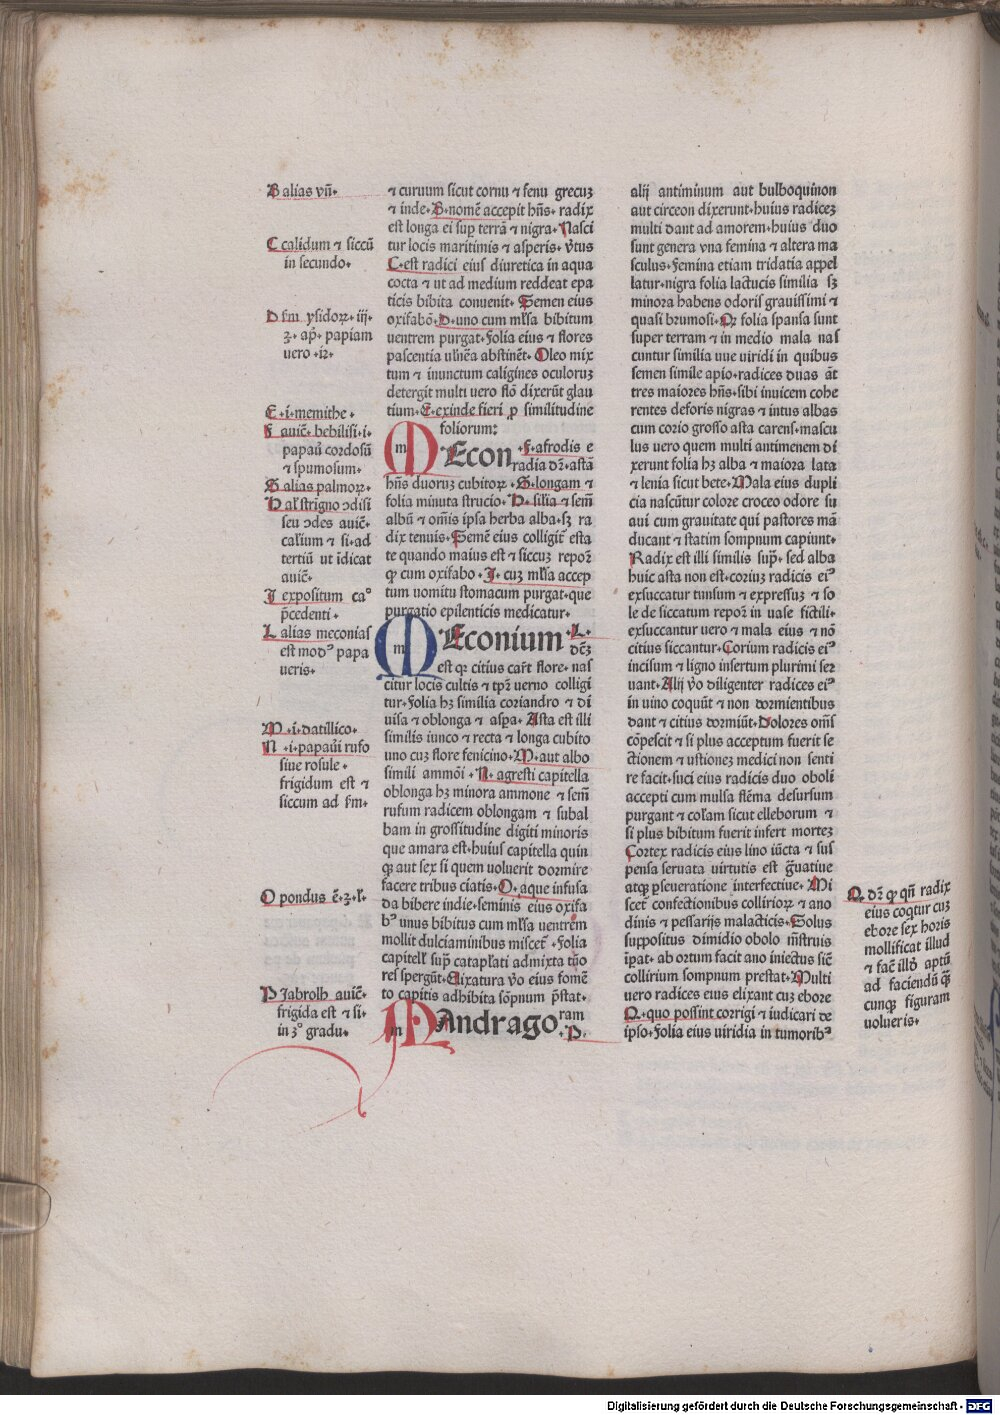 B alias vn̄.
C calidum ⁊ siccū
in secundo.
D ẜm ysidoꝝ. iij.
ʒ. ap̄. papiam
vero .iꝛ.
E .i. memithe.
F auic̄. hebilisi .i.
papaū cordosū
⁊ spumosum.
G alias palmoꝝ.
H al' strigno ↄdisi
seu ↄdes auic̄.
calium ⁊ si. ad
tertiū ut īdicat
auic̄.
I expositum ca°
p̄cedenti.
L alias meconias
est modꝰ papa
ueris.
M .i. datillico.
N .i. papaūi rufo
siue rosule.
frigidum est ⁊
siccum ad ẜm.
O pondus ē .ʒ.
P Jabrolh auic̄.
frigida est ⁊ si.
in 3° gradu.
⁊ curuum sicut cornu ⁊ fenu grecuꝫ
⁊ inde. B. nomē accepit hn̄s. radix
est longa ei suꝑ terrā ⁊ nigra. Nasci
tur locis maritimis ⁊ asperis. v̄tus
C. est radici eius diuretica in aqua
cocta ⁊ ut ad medium reddeat epa
ticis bibita conuenit. Semen eius
oxifabō. D. uno cum ml̄sa bibitum
uentrem purgat. Folia eius ⁊ flores
pascentia ulnēa abstinēt. Oleo mix
tum ⁊ inunctum caligines oculoruꝫ
detergit multi uero flō dixerūt glau
tium. E. exinde fieri ꝓ similitudine
foliorum:
MEcon .F. afrodis e
radia dr̄. astā
hn̄s duoruꝫ cubitoꝝ. G. longam ⁊
folia minuta strucio. H. silia ⁊ sem̄
albū ⁊ om̄is ipsa herba alba. sꝫ ra
dix tenuis. Semē eius colligit̄ esta
te quando maius est ⁊ siccuꝫ repor̄
ꝙ cum oxifabo. I. cuꝫ ml̄sa accep
tum uomitu stomacum purgat. que
purgatio epilenticis medicatur.
MEconium .L.
dcꝫ
est ꝙ citius car̄t flore. nas
citur locis cultis ⁊ tpr̄ uerno colligi
tur. Folia hꝫ similia coriandro ⁊ di
uisa ⁊ oblonga ⁊ aspa. Asta est illi
similis iunco ⁊ recta ⁊ longa cubito
uno cuꝫ flore fenicino. M. aut albo
simili ammōi. N. agresti capitella
oblonga hꝫ minora ammone ⁊ sem̄
rufum radicem oblongam ⁊ subal
bam in grossitudine digiti minoris
que amara est. huius capitella quin
ꝙ aut sex si quem uoluerit dormire
facere tribus ciatis. O. aque infusa
da bibere indie. seminis eius oxifa
bꝰ unus bibitus cum ml̄sa uentrem
mollit dulciaminibus miscet̄. Folia
capitell' suꝑ catapl̄ati admixta tūo
res spergūt. Elixatura v̄o eius fomē
to capitis adhibita sōpnum p̄stat.
MAndrago ram
.P.
alij antiminum aut bulboquinon
aut circeon dixerunt. huius radiceꝫ
multi dant ad amorem. huius duo
sunt genera vna femina ⁊ altera ma
sculus. Femina etiam tridatia appel
latur. nigra folia lactucis similia sꝫ
minora habens odoris grauissimi ⁊
quasi brumosi. Qꝛ folia spansa sunt
super terram ⁊ in medio mala nas
cuntur similia uue uiridi in quibus
semen simile apio. radices duas āt
tres maiores hn̄s. sibi inuicem cohe
rentes deforis nigras ⁊ intus albas
cum corio grosso asta carens. mascu
lus uero quem multi antimenem di
xerunt folia hꝫ alba ⁊ maiora lata
⁊ lenia sicut bete. Mala eius dupli
cia nascūtur colore croceo odore su
aui cum grauitate qui pastores mā
ducant ⁊ statim sompnum capiunt.
Radix est illi similis suꝑ. sed alba
huic asta non est. coriuꝫ radicis eiꝰ
exsuccatur tunsum ⁊ expressuꝫ ⁊ so
le de siccatum repor̄ in uase fictili.
exsuccantur uero ⁊ mala eius ⁊ nō
citius siccantur. Corium radicis eiꝰ
incisum ⁊ ligno insertum plurimi ser
uant. Alij v̄o diligenter radices eiꝰ
in uino coquūt ⁊ non dormientibus
dant ⁊ citius dormiūt. Dolores om̄s
cōpescit ⁊ si plus acceptum fuerit se
ctionem ⁊ ustioneꝫ medici non senti
re facit. suci eius radicis duo oboli
accepti cum mulsa flēma desursum
purgant ⁊ col̄am sicut elleborum ⁊
si plus bibitum fuerit infert morteꝫ
Cortex radicis eius lino iūcta ⁊ sus
pensa seruata uirtutis est ḡuatiue
atꝙ pseueratione interfectiue. Mi
scet̄ confectionibus collirioꝝ ⁊ ano
dinis ⁊ pessarijs malacticis. Solus
suppositus dimidio obolo m̄struis
īpat. ab ortum facit ano iniectus sic̄
collirium sompnum prestat. Multi
uero radices eius elixant cuꝫ ebore
Q. quo possint corrigi ⁊ iudicari de
ipso. Folia eius uiridia in tumoribꝰ
Q. dr̄ ꝙ qn̄ radix
eius coqtur cuꝫ
ebore sex horis
mollificat illud
⁊ fac̄ illō aptū
ad faciendū q̄
cunqꝫ figuram
uolueris.
Digitalisierung gefördert durch die Deutsche Forschungsgemeinschaft - DFG